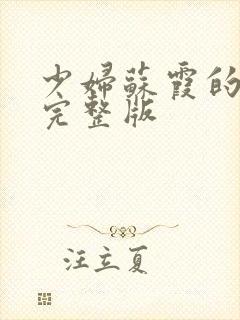 少婦蘇霞的
完整版
汪立夏